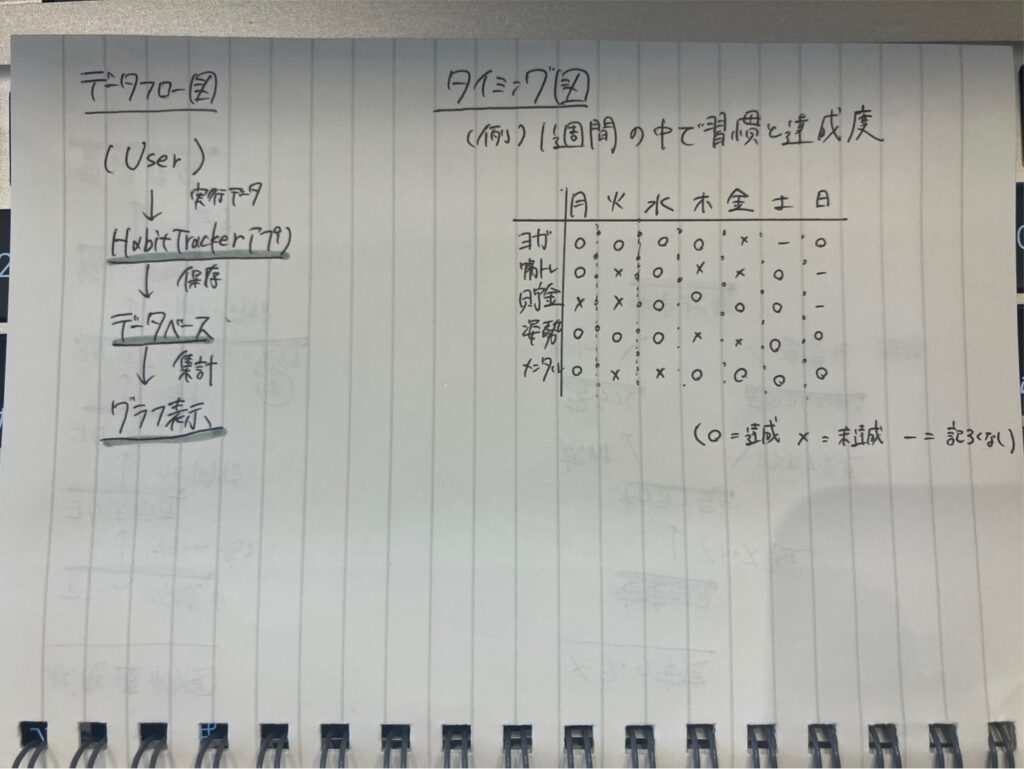 データフロー図
(User)
↓ 実行データ
HabitTracker(アプリ)
↓ 保存
データベース
↓ 集計
グラフ表示
タイミング図
(例) 1週間の中で習慣と達成度
月 火 水 木 金 土 日
ヨガ ○ ○ ○ ○ × − ○
筋トレ ○ × ○ × × ○ −
貯金 × × ○ ○ ○ ○ −
姿勢 ○ ○ ○ × × ○ ○
メンタル ○ × × ○ ○ ○ ○
(○ = 達成 × = 未達成 − = 記ろくなし)